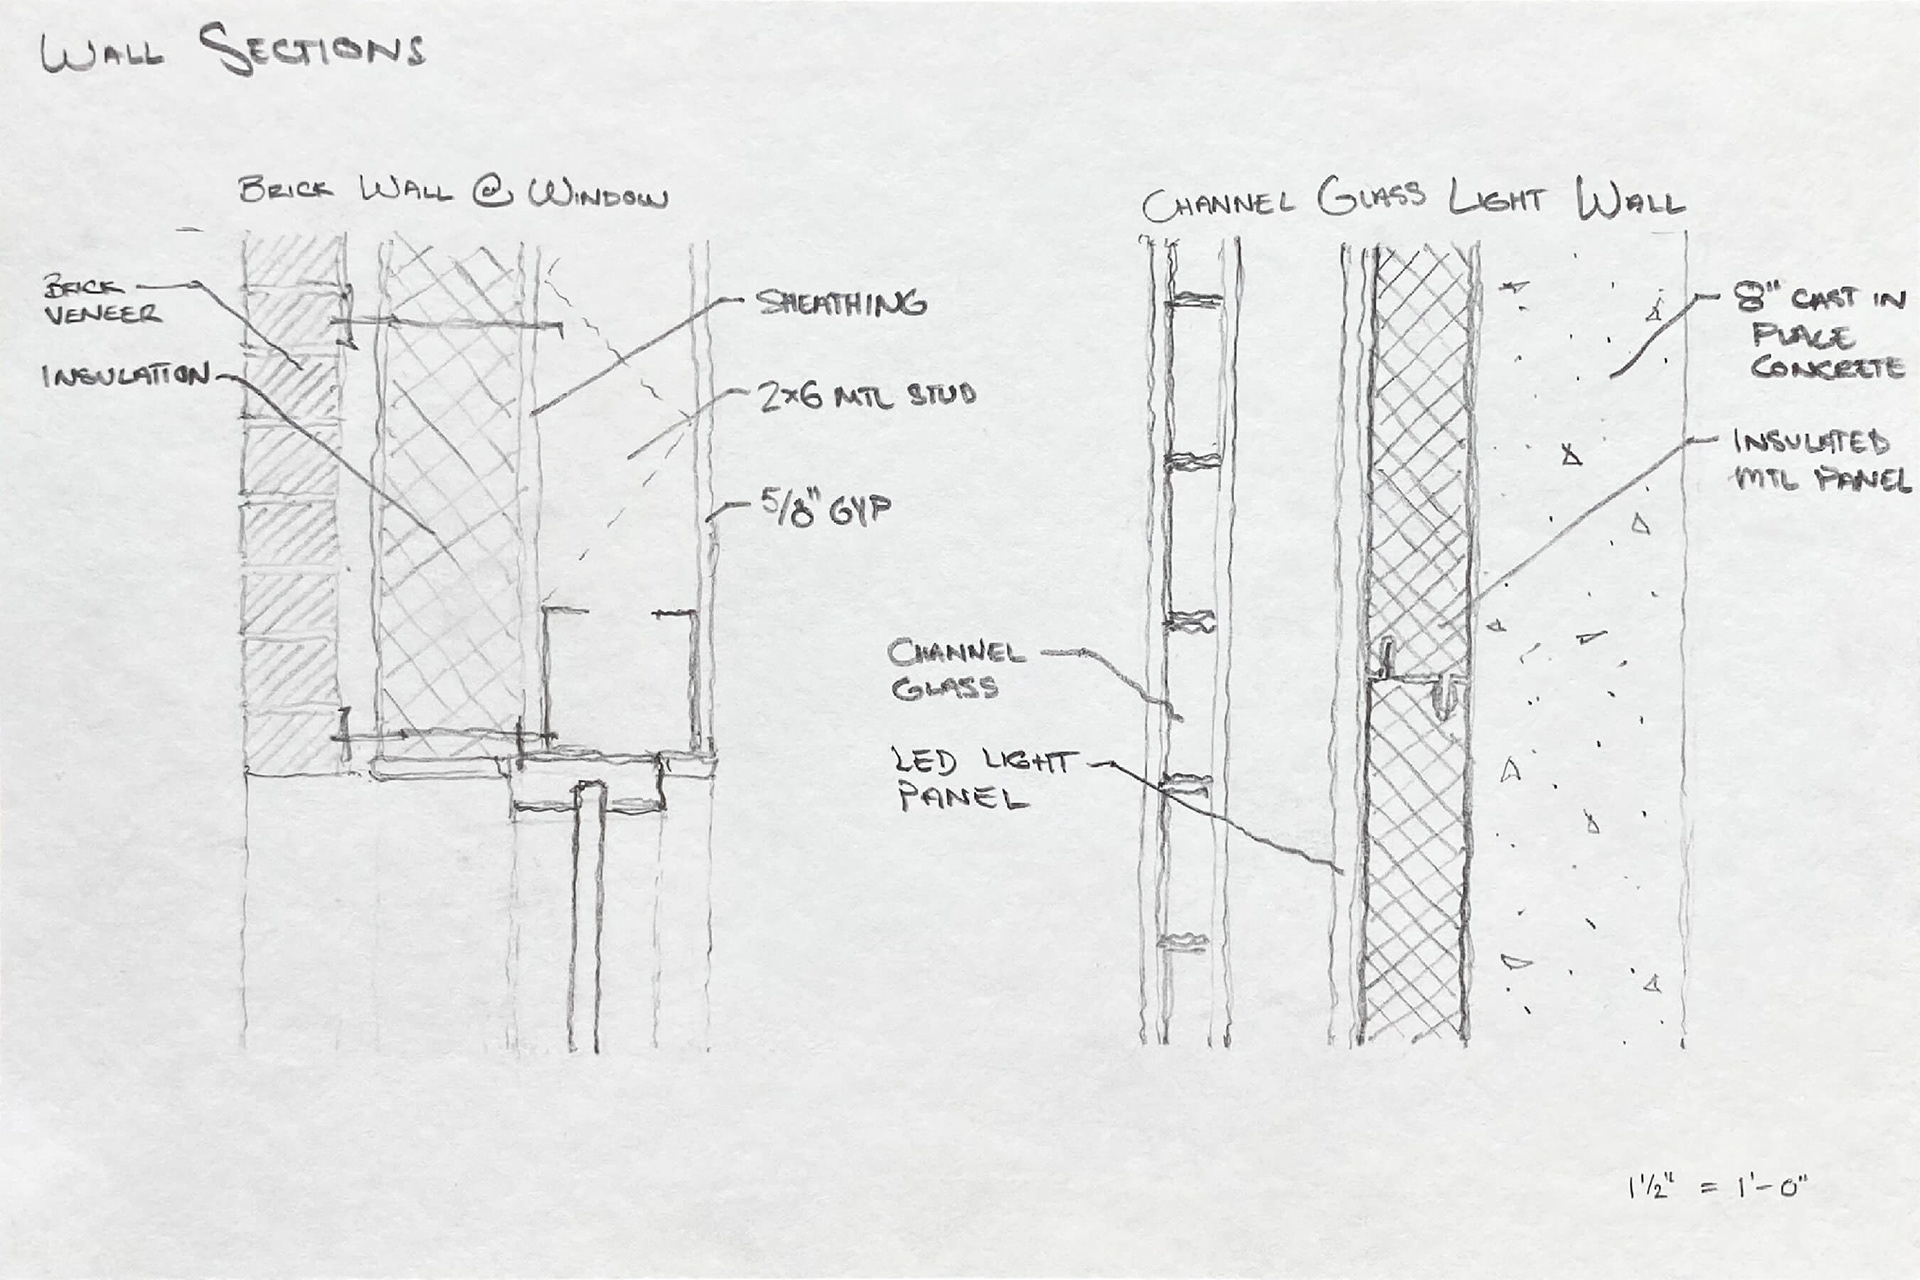 WALL SECTIONS
BRICK WALL @ WINDOW
BRICK
VENEER
INSULATION
SHEATHING
2x6 MTL STUD
5/8" GYP
CHANNEL GLASS LIGHT WALL
8" CAST IN
PLACE
CONCRETE
INSULATED
MTL PANEL
CHANNEL
GLASS
LED LIGHT
PANEL
1 1/2" = 1'-0"